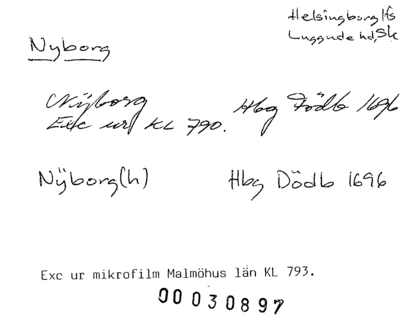 Helsingborg lfs
Luggude hd, Sk
Nyborg
Nÿborg Hbg Dödb 1696
Exc ur KL 790.
Nÿborg(h) Hbg Dödb 1696
Exc ur mikrofilm Malmöhus län KL 793.
00030897